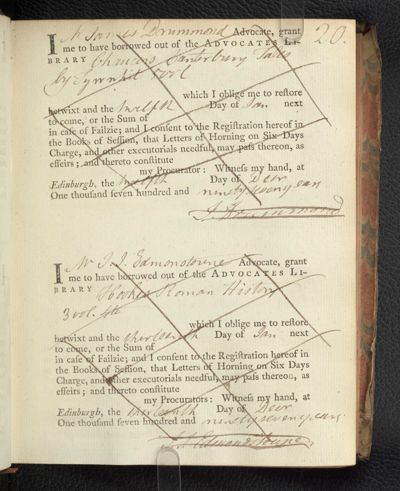 20.
I Mr James Drummond Advocate, grant
me to have borrowed out of the ADVOCATES LI-
BRARY Chaucers Canterbury Tales
by Tyrwhit 5 vol.
which I oblige me to restore
betwixt and the twelfth Day of Jan next
to come, or the Sum of
in case of Failzie; and I consent to the Registration hereof in
the Books of Session, that Letters of Horning on Six Days
Charge, and other executorials needful, may pass thereon, as
effeirs; and thereto constitute
my Procurator: Witness my hand, at
Edinburgh, the twelfth Day of Decr
One thousand seven hundred and ninety seven years
J. Drummond
I Mr J. J. Edmondstoune Advocate, grant
me to have borrowed out of the ADVOCATES LI-
BRARY Hookes Roman History
3 vol. 4to
which I oblige me to restore
betwixt and the thirteenth Day of Jan next
to come, or the Sum of
in case of Failzie; and I consent to the Registration hereof in
the Books of Session, that Letters of Horning on Six Days
Charge, and other executorials needful, may pass thereon, as
effeirs; and thereto constitute
my Procurators: Witness my hand, at
Edinburgh, the thirteenth Day of Decr
One thousand seven hundred and ninety seven years
Edmondstoune